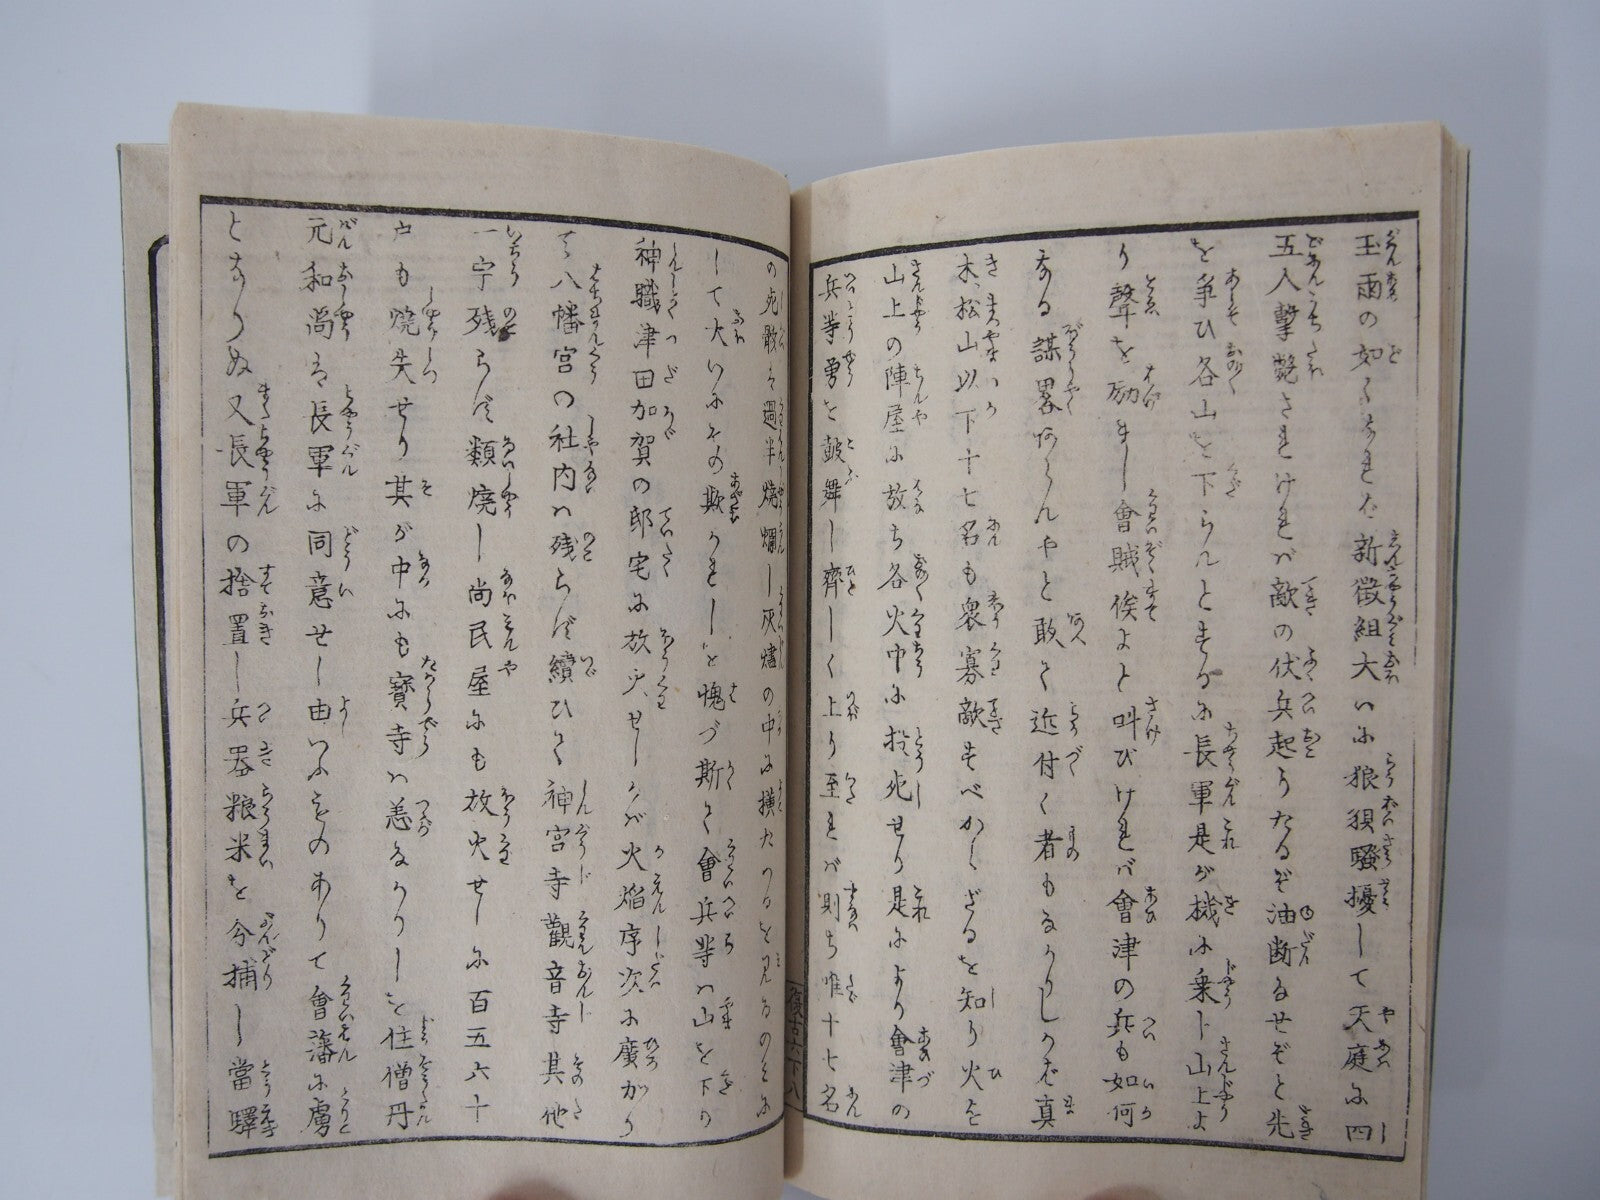 玉雨の如くなれば新徴組大いに狼狽騒擾して天庭に四
五人撃斃されければ敵の伏兵起りたるぞ油断なせぞと先
を争ひ各山を下らんとするに長軍是が機に乗じ山上よ
り聲を励まし會賊俟よと叫びければ會津の兵も如何
なる謀畧あらんやと敢て近付く者もなかりしかば真
木、松山以下十七名も衆寡敵すべからざるを知り火を
山上の陣屋に放ち各火中に投死せり是により會津の
兵等勇を鼓舞し齊しく上り至れば則ち唯十七名
の死骸を過半燒爛し灰燼の中に横たはるを見るのみに
して大いにその欺かれしを愧づ斯て會兵等は山を下り
神職津田加賀の邸宅に放火せしかば火焔序次に廣がり
て八幡宮の社内は残らず續ひて神宮寺觀音寺其他
一宇残らず類燒し尚民屋にも放火せしに百五六十
戸も焼失せり其が中にも寶寺は恙なかりしを住僧丹
元和尚は長軍に同意せし由いふものありて會藩に虜
となりぬ又長軍の捨置し兵器粮米を分捕し當驛
復古六下八